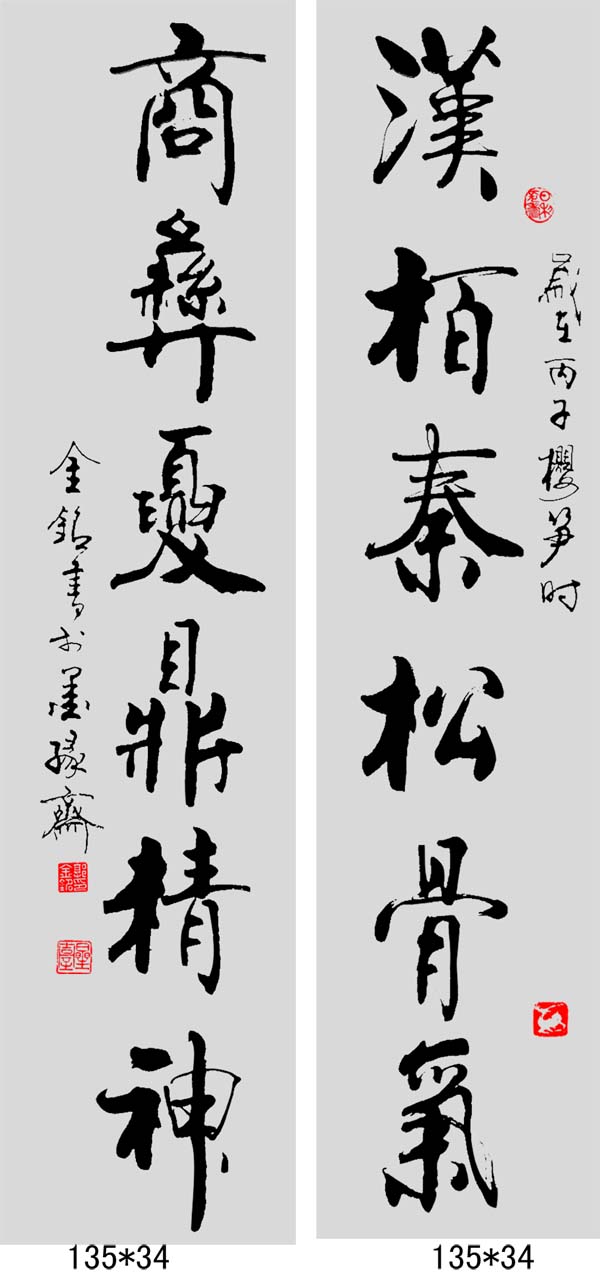 漢柏秦松骨氣
歲在丙子櫻笋时
商彝夏鼎精神
金銘書於墨緣齋
135*34
135*34